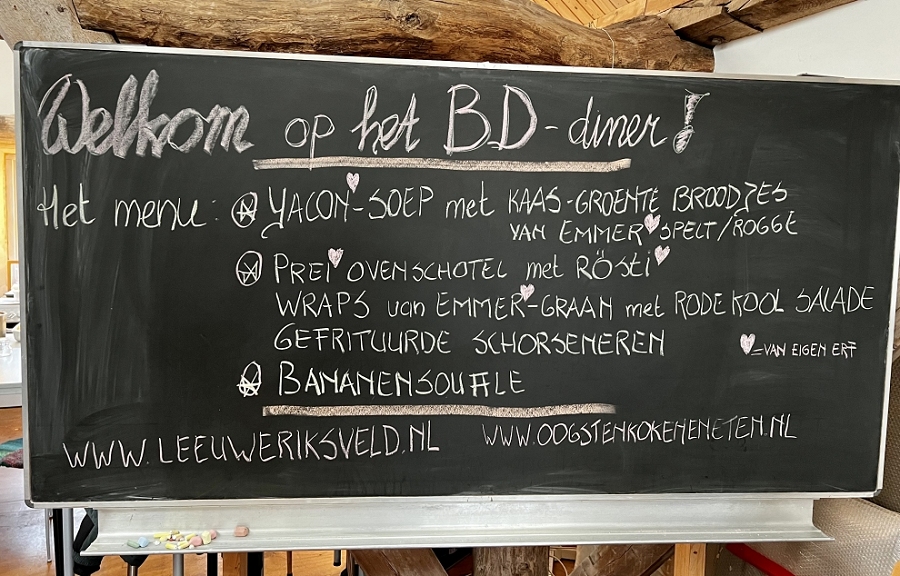 Welkom op het BD-diner!
Het menu: YACON-SOEP met KAAS-GROENTE BROODJES
VAN EMMER SPELT/ROGGE
PREI OVENSCHOTEL met RÖSti
WRAPS van EMMER-GRAAN met RODE KOOL SALADE
GEFRITUURDE SCHORSENEREN
=VAN EIGEN ERF
BANANENSOUFFLE
WWW.LEEUWERIKSVELD.NL WWW.OOGSTENKOKENENETEN.NL